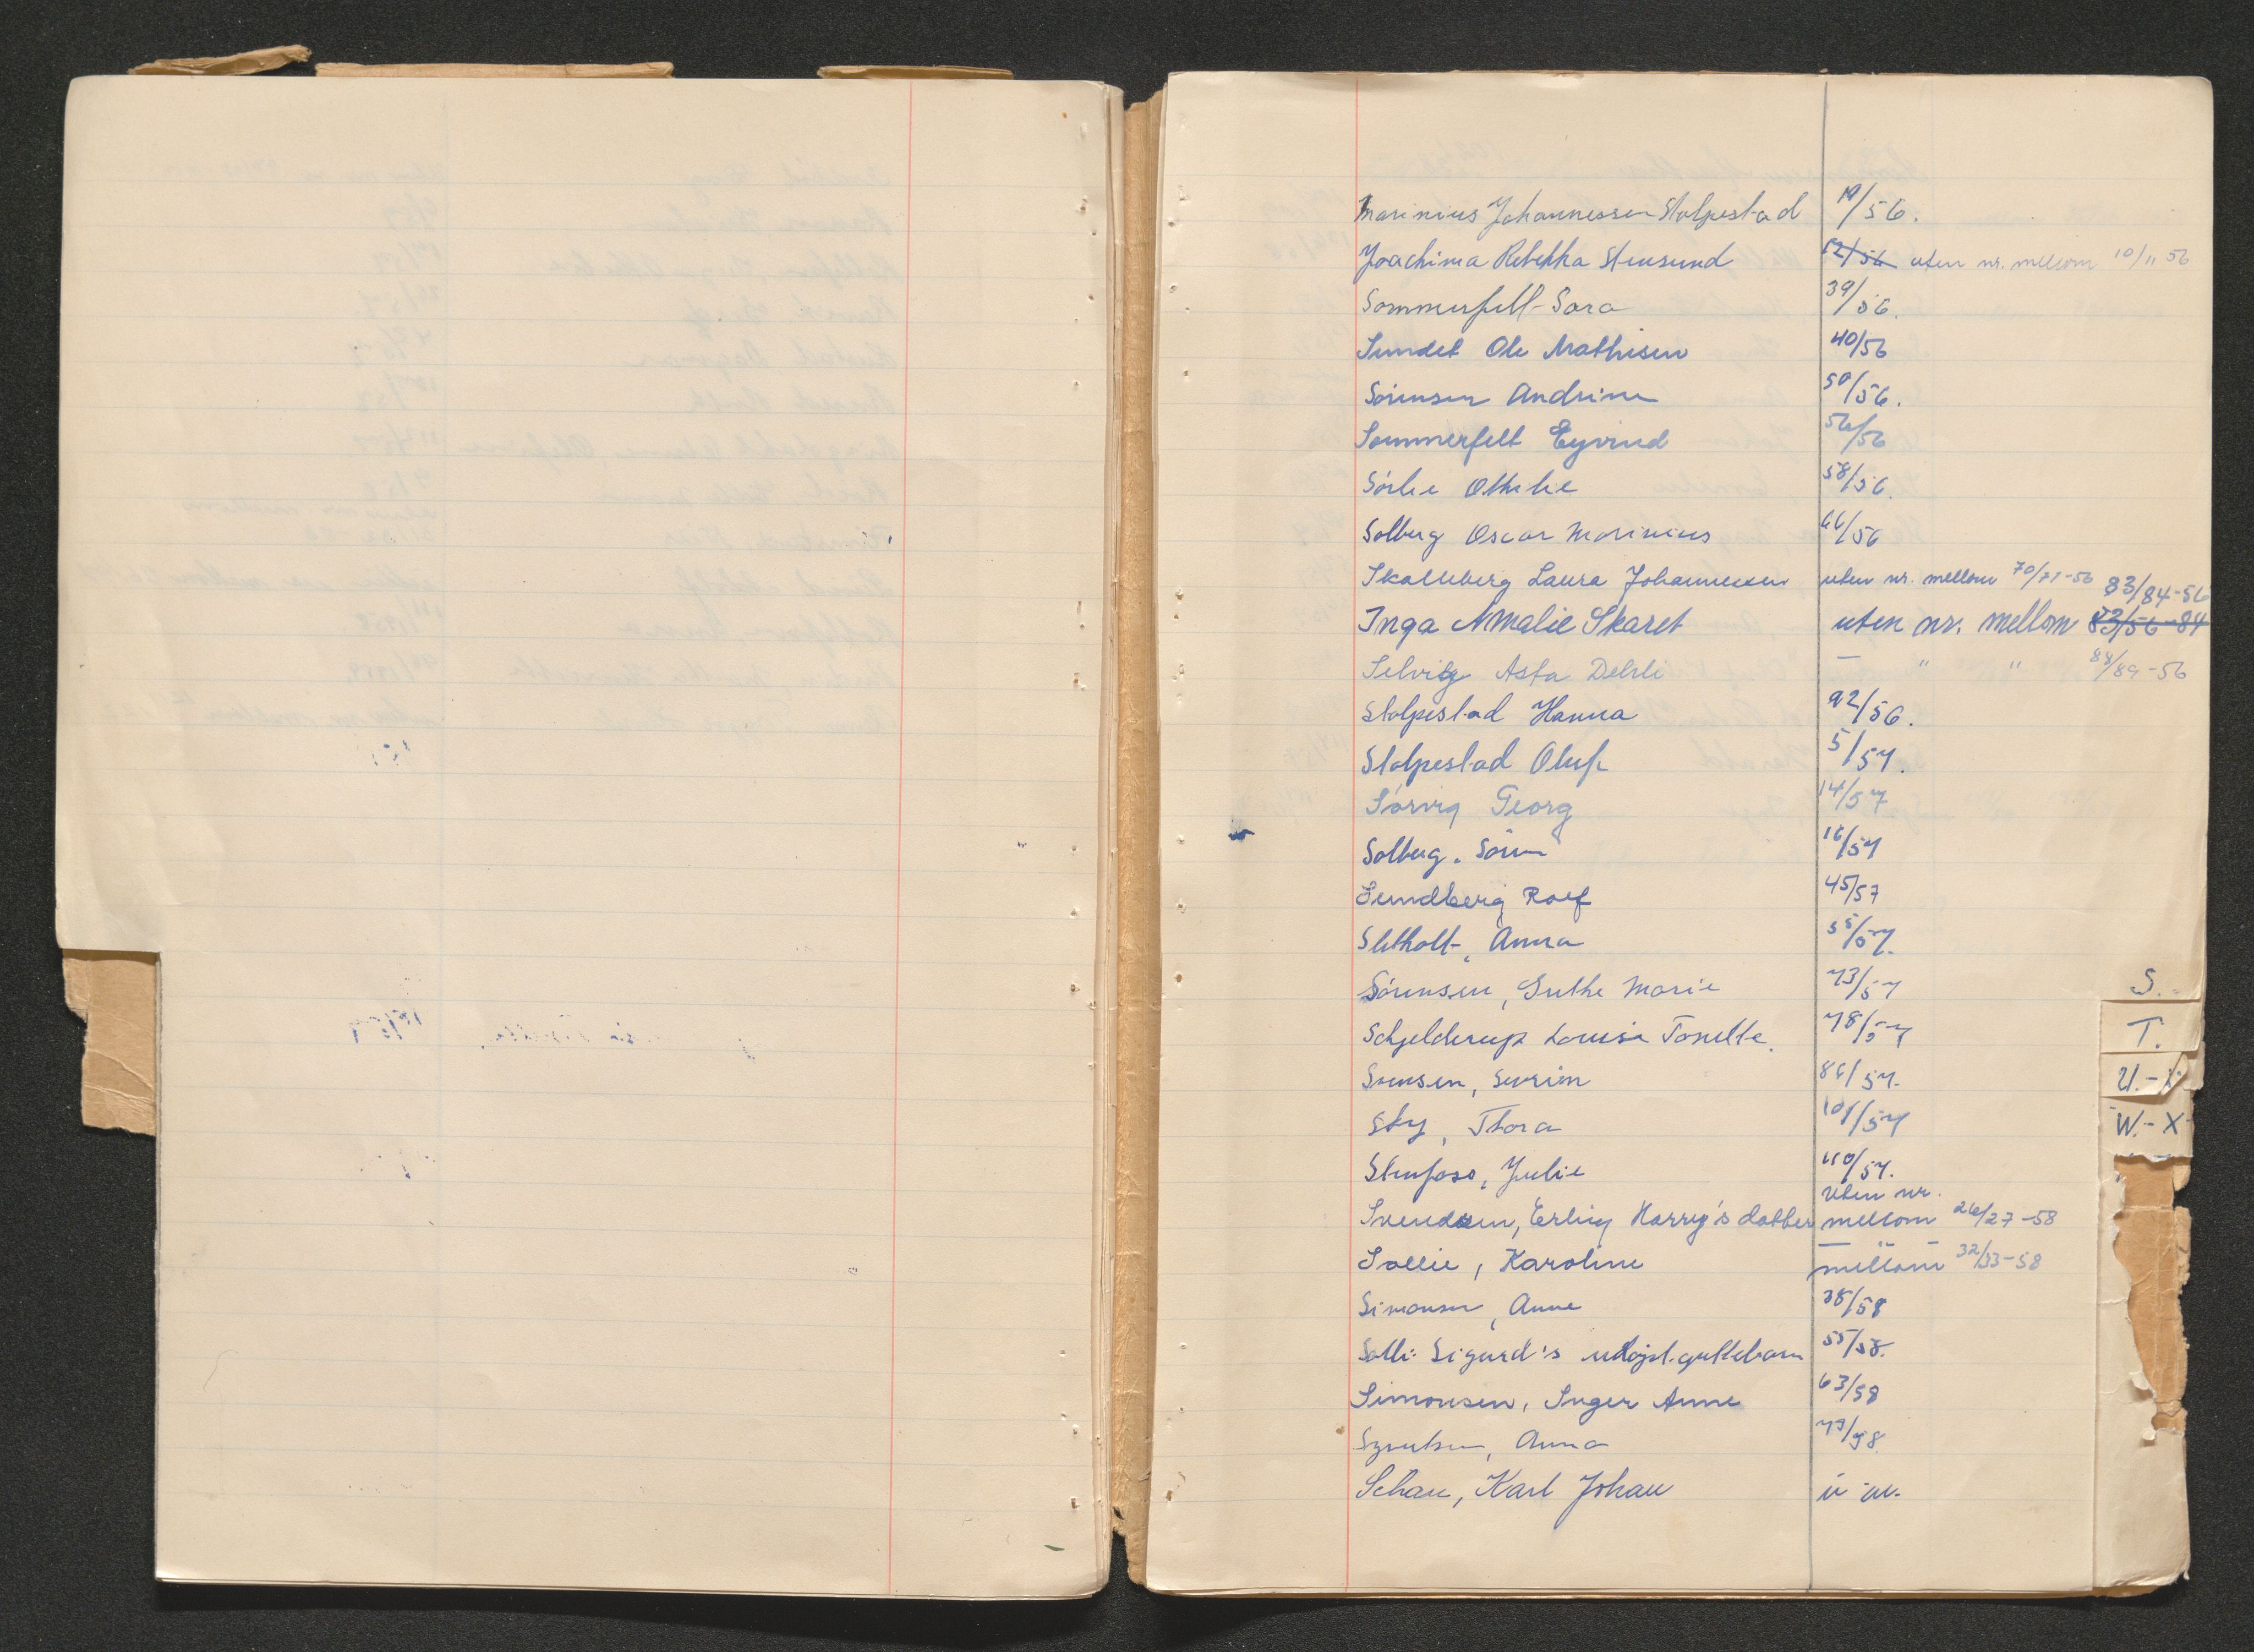 Marinius Johannessen Stolpestad 19/56.
Joachima Rebekka Stensund 12/56 uten nr. mellom 10/11 56
Sommerfelt Sara 39/56.
Sundet Ole Mathisen 40/56
Sörensen Andrine 50/56.
Sommerfelt Eyvind 56/56
Sörlie Othilie 58/56.
Solberg Oscar Marinius 66/56
Skalleberg Laura Johannessen uten nr. mellom 70/71-56
83/84-56
Inga Amalie Skaret uten nr. mellom 83/56-84
Selvig Asta Dehli — " " 88/89-56
Stolpestad Hanna 92/56.
Stolpestad Oluf 5/57.
Sörvig Georg 14/57
Solberg. Sören 16/57
Sundberg Rolf 45/57
Sletholt, Anna 55/57.
Sörensen, Grethe Marie 73/57
S.
Schjelderup Louise Tonette. 78/57
T.
Svensen, Severin 86/57.
U.-V.
Sky, Thora 101/57
W.-X
Stenfoss, Julie 110/57.
uten nr.
Svendsen, Erling Harry's datter mellom 26/27-58
— " —
Sollie, Karoline mellom 32/33-58
Simonsen, Anne 38/58
Solli: Sigurd's udöpt. guttebarn 55/58.
Simonsen, Inger Anne 63/58
Anna 73/58.
Schau, Karl Johan